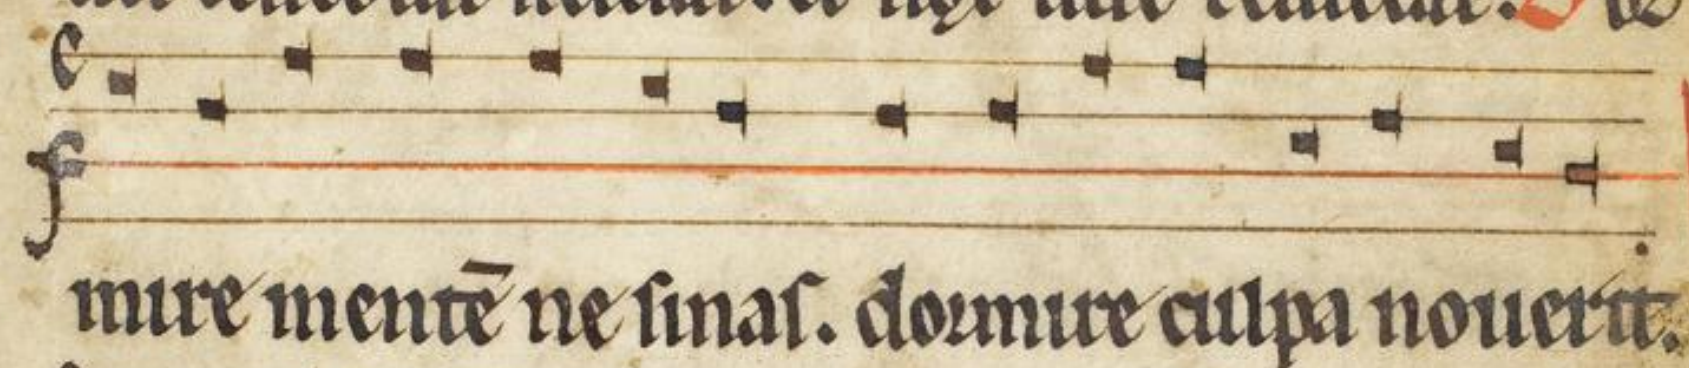 mire mentē ne sinas. dormire culpa nouerit.